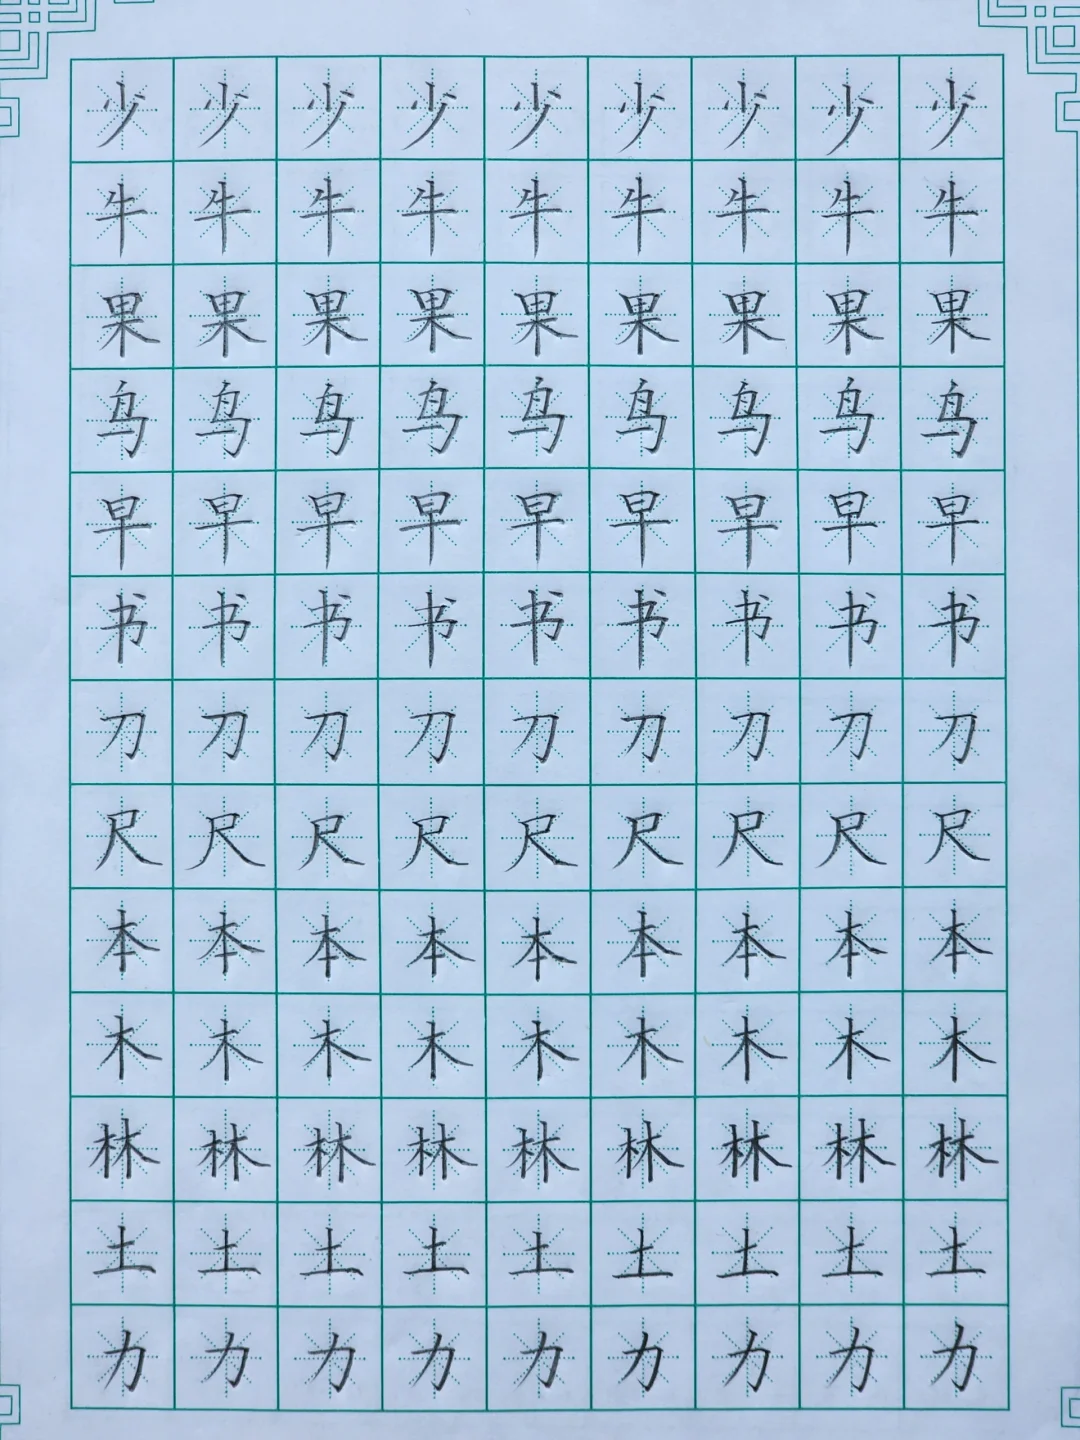 少少少少少少少少少
牛牛牛牛牛牛牛牛牛
果果果果果果果果果
鸟鸟鸟鸟鸟鸟鸟鸟鸟
早早早早早早早早早
书书书书书书书书书
刀刀刀刀刀刀刀刀刀
尺尺尺尺尺尺尺尺尺
本本本本本本本本本
木木木木木木木木木
林林林林林林林林林
土土土土土土土土土
力力力力力力力力力